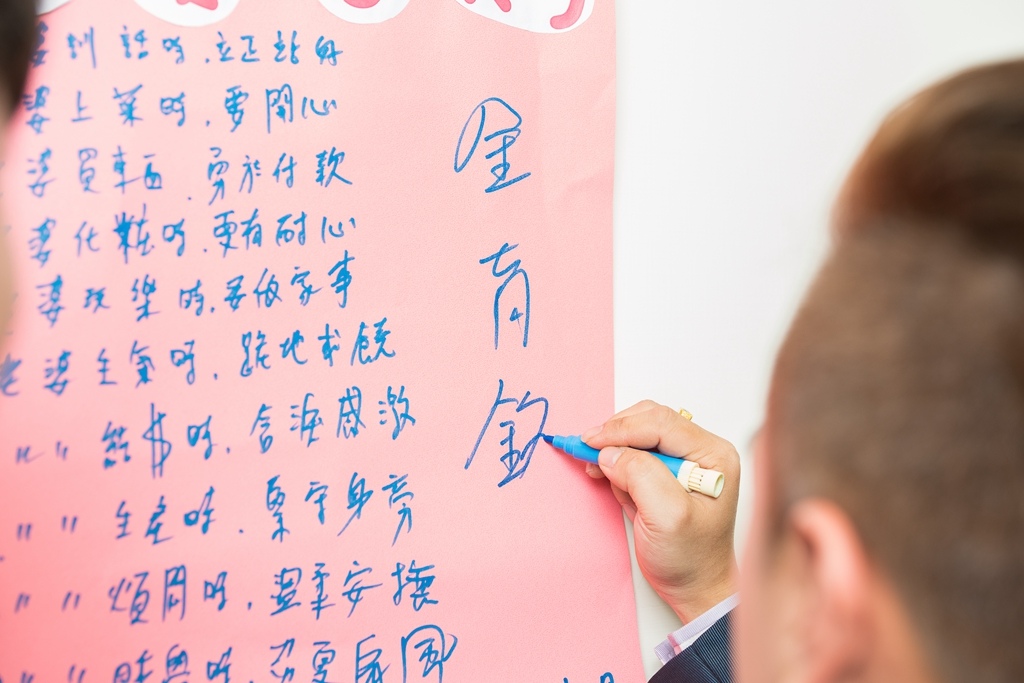 婆訓話時,立正站好
婆上菜時,要開心
婆買東西,勇於付款
婆化粧時,要有耐心
婆玩樂時,要做家事
老婆生氣時,跪地求饒
〃〃給$時,含淚感激
〃〃生產時,緊守身旁
〃〃煩悶時,溫柔安撫
時,
金育